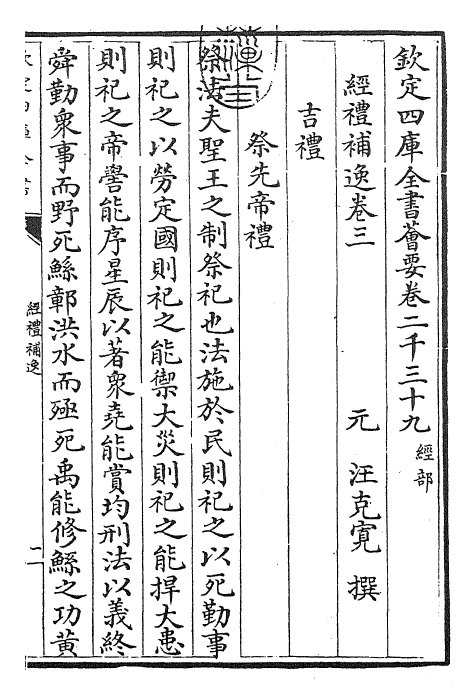 欽定四庫全書薈要卷二千三十九 經部
經禮補逸卷三
元 汪克寬 撰
吉禮
祭先帝禮
祭法夫聖王之制祭祀也法施於民則祀之以死勤事
則祀之以勞定國則祀之能禦大災則祀之能捍大患
則祀之帝嚳能序星辰以著衆堯能賞均刑法以義終
舜勤衆事而野死鯀鄣洪水而殛死禹能修鯀之功黄
經禮補逸